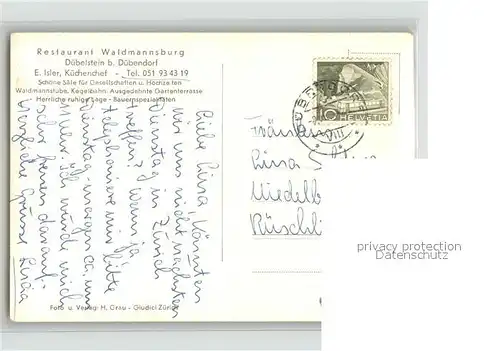 Restaurant Waldmannsburg
Dübelstein b. Dübendorf
E. Isler, Küchenchef - Tel. 051 93 43 19
Schöne Säle für Gesellschaften u. Hochzeiten
Waldmannstube, Kegelbahn, Ausgedehnte Gartenterrasse
Herrliche ruhige Lage - Bauernspezialitäten
Liebe Lina Könnten
wir uns nicht nächsten
Dienstag in Zürich
treffen? Wenn ja
telephoniere mir bitte
Dienstag morgen ca. um
Uhr. Ich würde mich
sehr freuen darauf.
Herzliche Grüsse Lucia
10 HELVETIA
Fräulein
Lina
Rüschli
Foto u. Verlag H. Grau - Giudici Zürich
privacy protection
Datenschutz